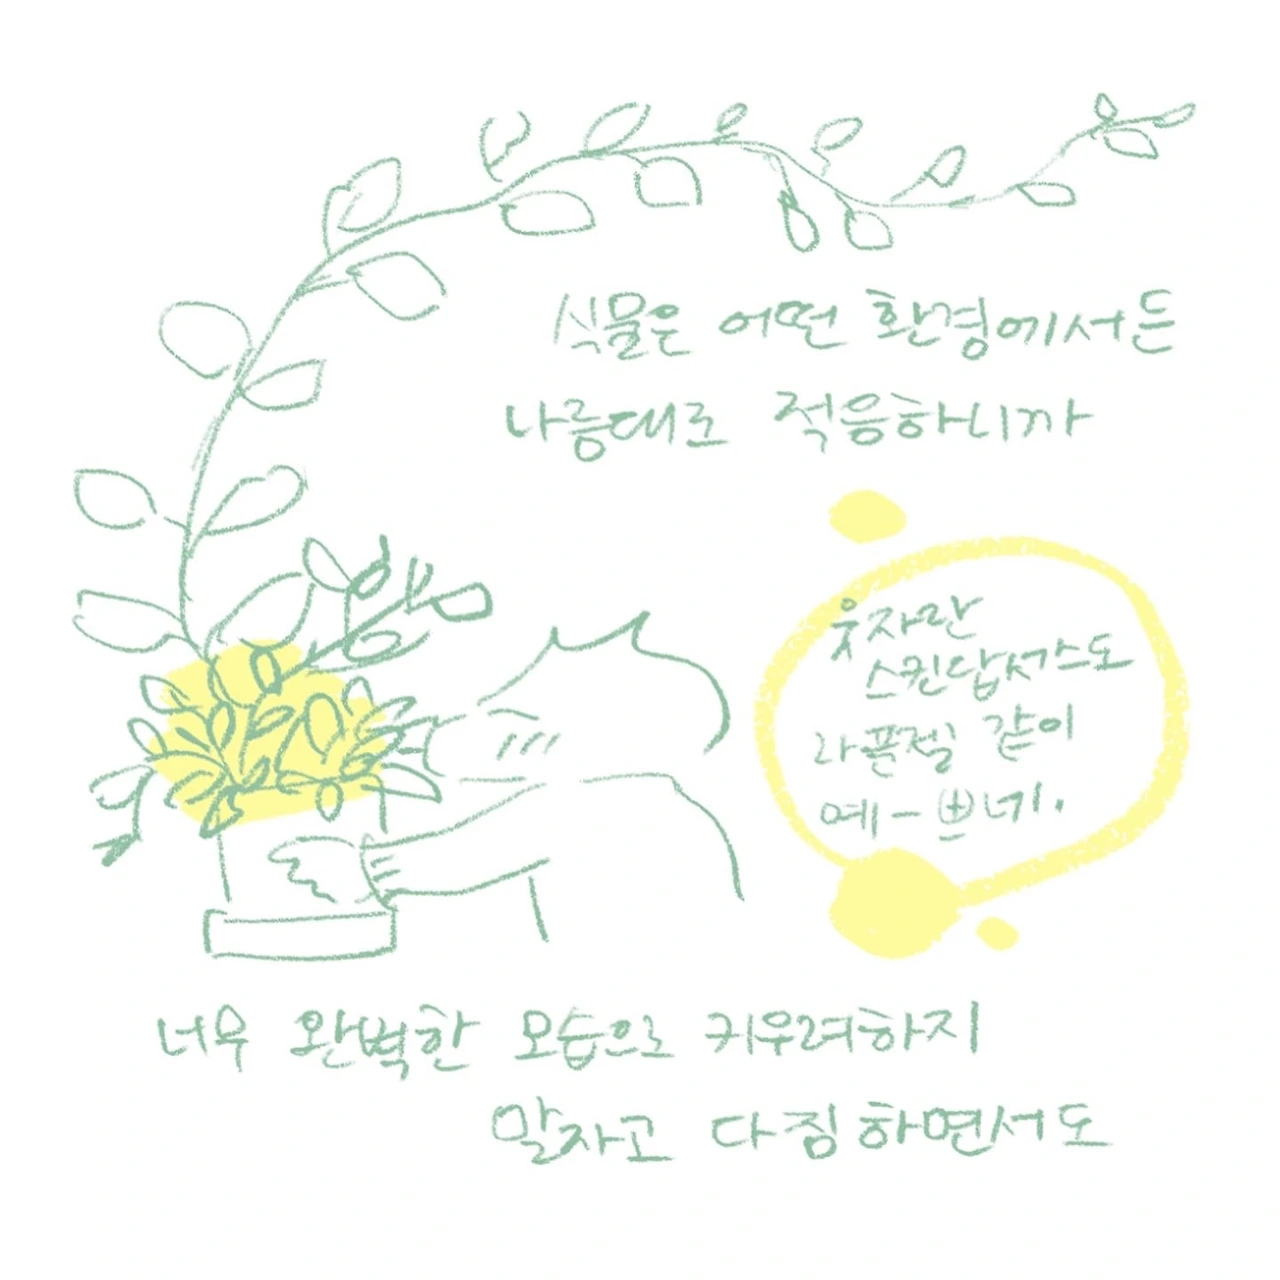 식물은 어떤 환경에서든
나름대로 적응하니까
웃자란
스킨답서스도
라푼젤 같이
예-쁘네.
너무 완벽한 모습으로 키우려하지
말자고 다짐하면서도